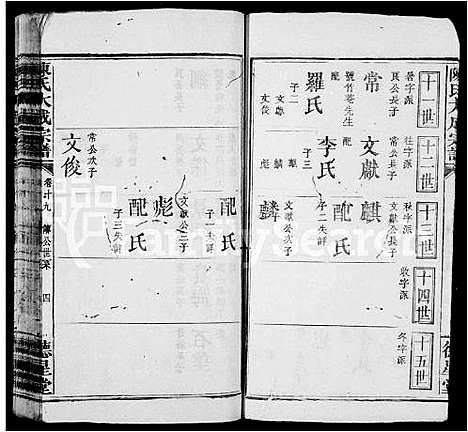 陳氏大成宗譜
十一世
十二世
十三世
十四世
十五世
暑字派
艮公長子
常
號竹菴先生
子二
羅氏
文獻
文俊
往字派
常公長子
文獻
子三
李氏
麒
麟
彪
秋字派
文獻公長子
麒
配氏
子二失詳
文獻公次子
麟
收字派
冬字派
配氏
子一失詳
文獻公三子
彪
配氏
子三失詳
常公次子
文俊
陳氏大成宗譜
四
德星堂
德星堂